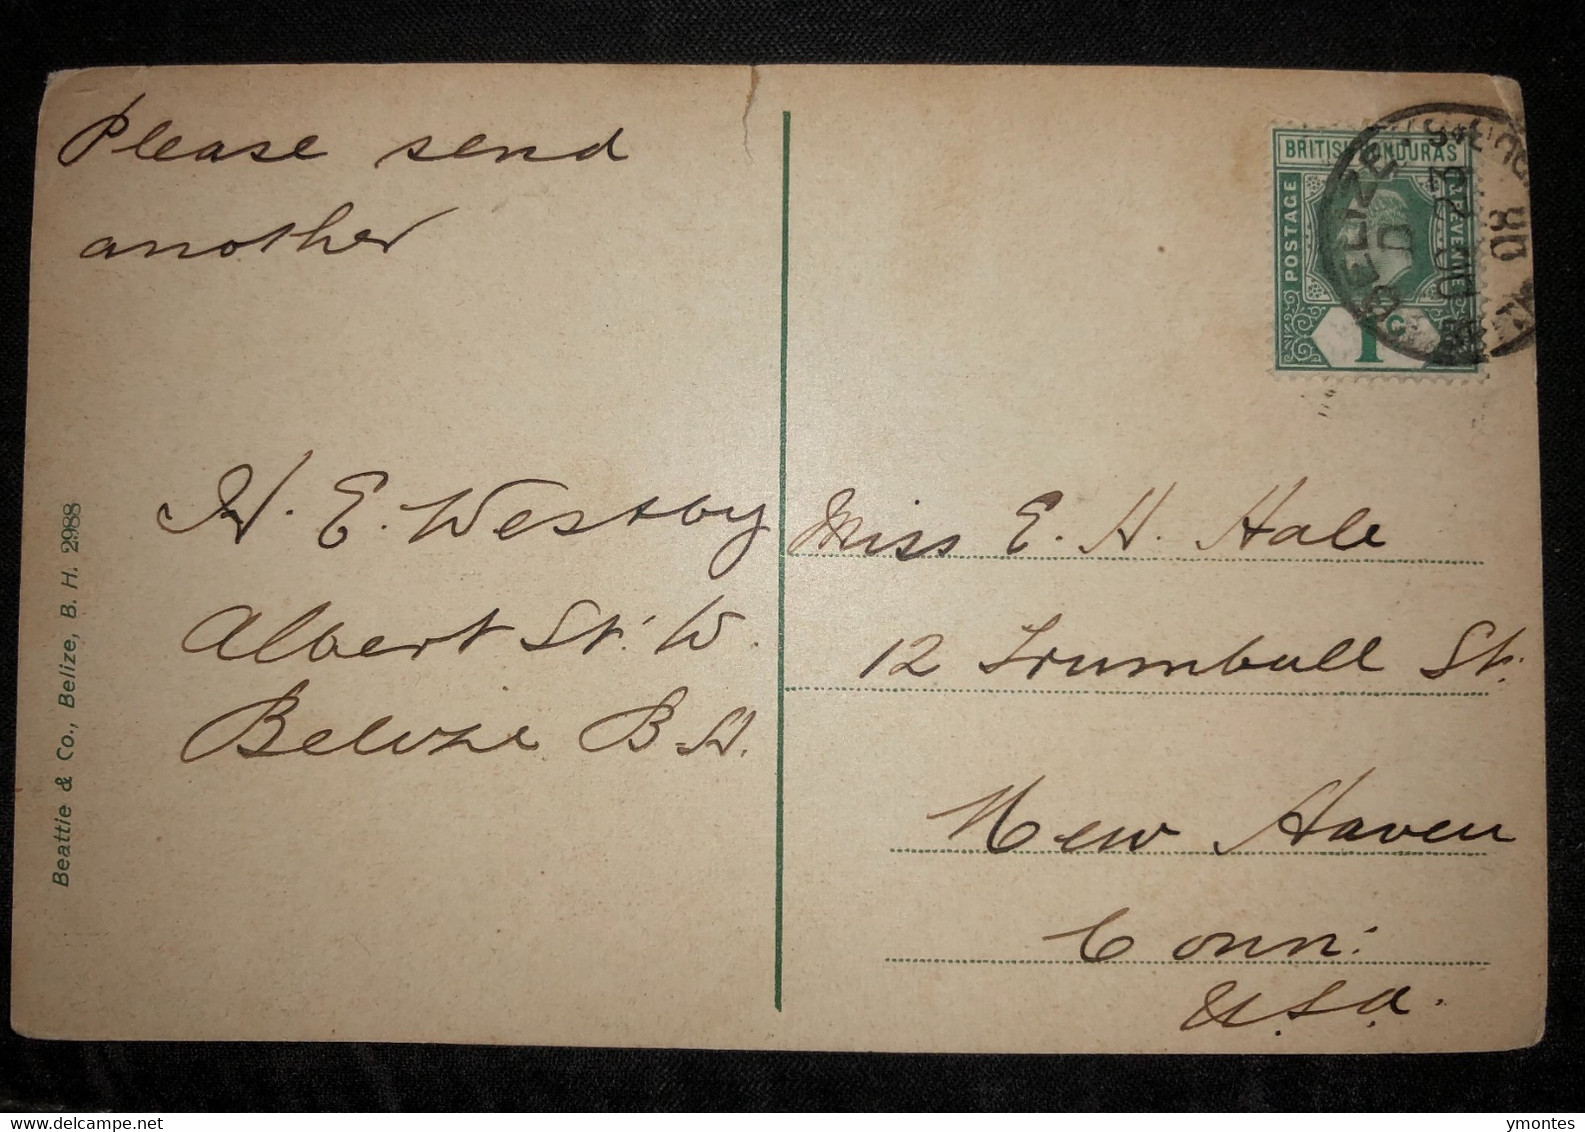 Please send
another
H. E. Westby
Albert St. W.
Belize B. H.
Beattie & Co., Belize, B. H. 2988
BRITISH HONDURAS
POSTAGE
1
BELIZE
D
08
Miss E. H. Hale
12 Trumbull St.
New Haven
Conn.
U.S.A.
delcampe.net
ymontes